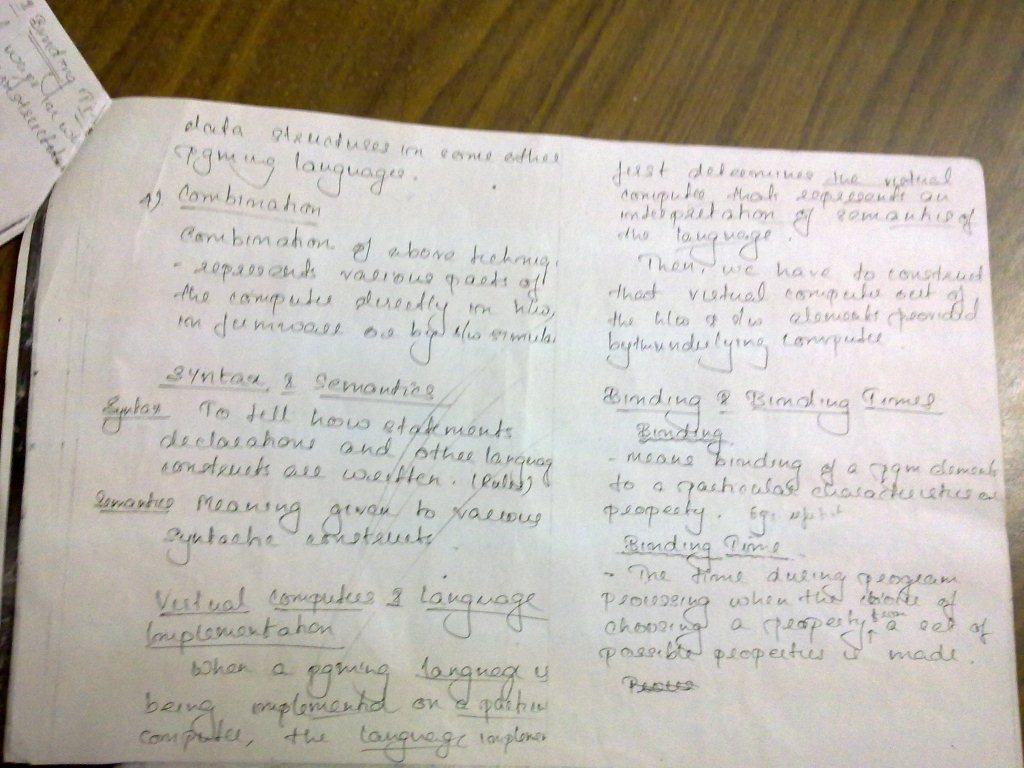 data structures in some other
pgming languages.
4) Combination
Combination of above techniq.
- represents various parts of
the computer directly in h/w,
in firmware or by s/w simula
Syntax & Semantics
Syntax To tell how statements
declarations and other languag
constructs are written. (Rules)
Semantics Meaning given to various
syntactic constructs
Virtual Computers & Language
Implementation
When a pgming language is
being implemented on a particu
computer, the language implemen
first determines the virtual
computer that represents an
interpretation of semantics of
the language.
Then, we have to construct
that virtual computer out of
the h/w & s/w elements provided
by the underlying computer
Binding & Binding Times
Binding
- means binding of a pgm elements
to a particular characteristics or
property. Eg:
Binding Time
- The time during program
processing when the choice of
choosing a property from a set of
possible properties is made.
& Binding Ti